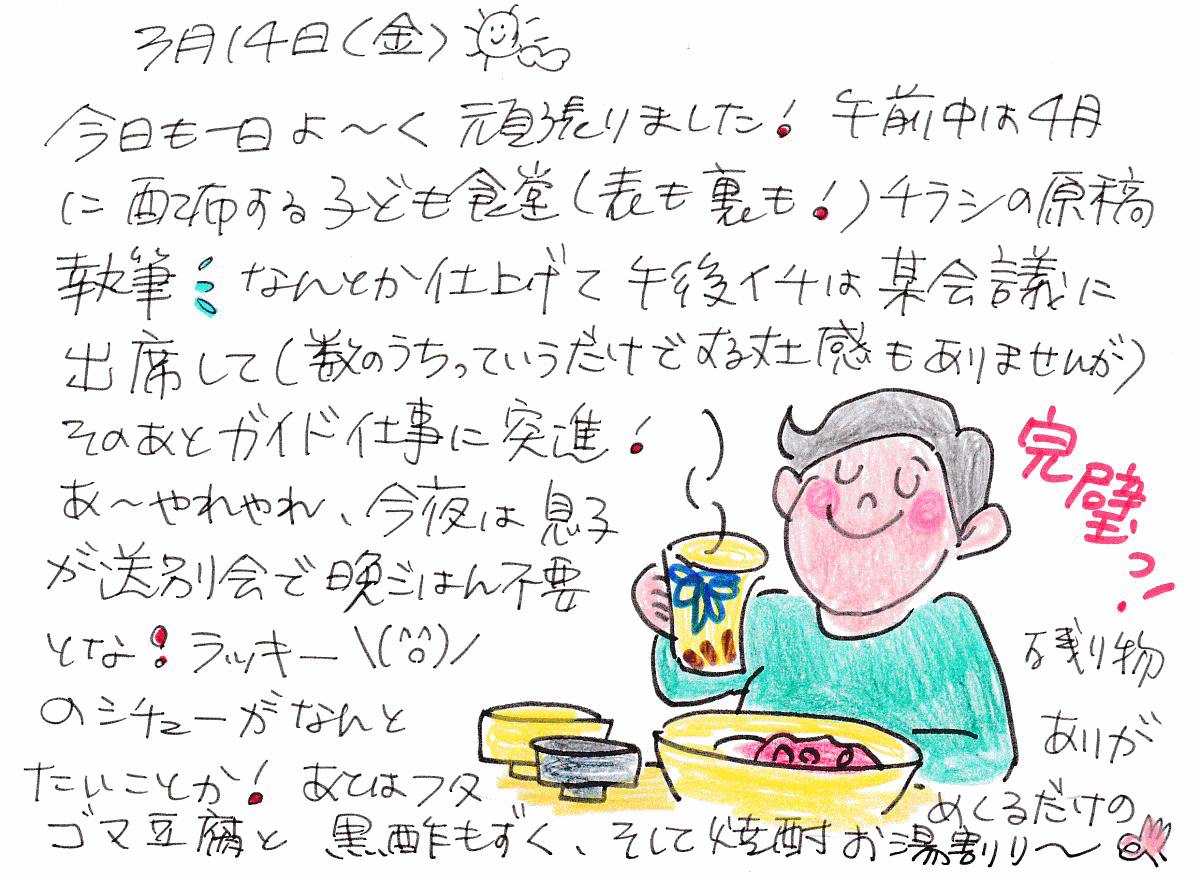 3月14日(金)
今日も一日よ〜く頑張りました!午前中は4月
に配布する子ども食堂(表も裏も!)チラシの原稿
執筆 なんとか仕上げて午後イチは某会議に
出席して(数のうちっていうだけで する丈土感もありませんが)
そのあとガイド仕事に突進!
あ〜やれやれ、今夜は息子
が送別会で晩ごはん不要
とな!ラッキー \(^o^)/ 残り物
のシチューがなんと ありが
たいことか!あとはフタ めくるだけの
ゴマ豆腐と黒酢もずく、そして焼酎お湯割り〜
完璧っ!